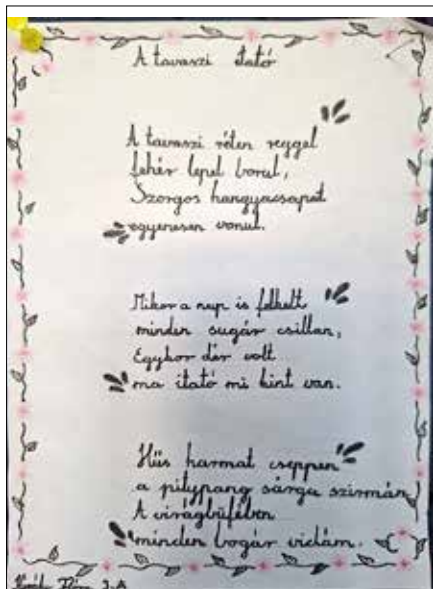 A tavaszi itató
A tavaszi réten reggel
fehér lepel borul,
Szorgos hangyacsapat
egyenesen vonul.
Mikor a nap is felkelt
minden sugár csillan,
Egykor dér volt
ma itató mi kint van.
Hűs harmat cseppen
a pitypang sárga szirmán
A virágbüfében
minden bogár vidám.
3.A